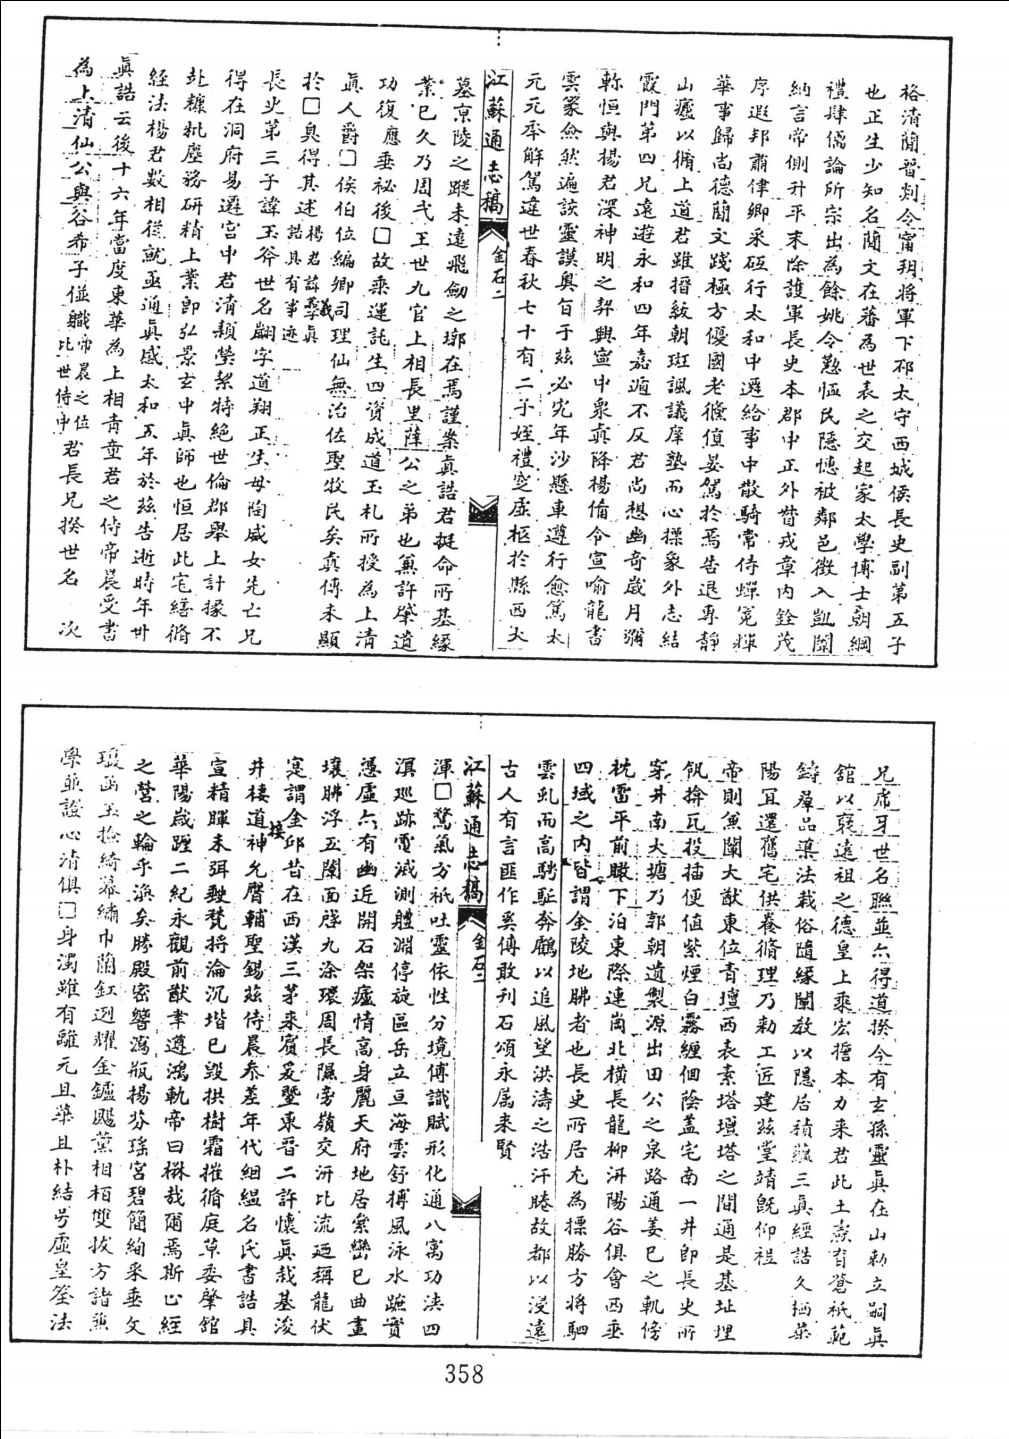 裕清簡晉剡令甯朔將軍下邳太守西城侯長史副第五子
也正生少知名簡文在藩為世表之交起家太學博士朝綱
禮肆儒論所宗出為餘姚令懃恤民隱惠被鄰邑徵入凱闈
納言帝側升平末除護軍長史本郡中正外督戎章內銓茂
序遐邦肅律鄉采砥行太和中遷給事中散騎常侍蟬冕輝
華事歸尚德簡文踐極方優國老儵值晏駕於焉告退專靜
山廬以脩上道君雖搢紱朝班諷議庠塾而心標象外志結
霞門第四兄遠遊永和四年嘉遁不反君尚想幽奇歲月彌
軫恒與楊君深神明之契興寧中眾真降楊備令宣喻龍書
雲篆僉然遍該靈謨奧旨于茲必究年沙懸車遵行愈篤太
元元年解駕違世春秋七十有二子姪禮窆虛柩於縣西大
江蘇通志稿 金石二
墓京陵之蹤未遠飛劍之墎在焉謹案真誥君挺命所基緣
業已久乃周弌王世九官上相長里薛公之弟也兼許肇遺
功復應垂祕後□故乘運託生四資成道玉札所授為上清
真人爵□侯伯位編卿司理仙無治佐聖牧民矣真傳未顯
於□與得其述楊君諱羲真誥具有事迹
長史第三子諱玉斧世名翽字道翔正生母陶威女先亡兄
得在洞府易遷宮中君清穎瑩絜特絕世倫郡舉上計掾不
赴糠粃塵務研精上業即弘景玄中真師也恒居此宅繕脩
經法楊君數相從就亟通真感太和五年於茲告逝時年卅
真誥云後十六年當度東華為上相青童君之侍帝晨受書
為上清仙公與谷希子並職帝晨之位比世侍中君長兄揆世名 次
兄虎牙世名聯並亦得道揆今有玄孫靈真在山勅立嗣真
館以褒遠祖之德皇上乘宏誓本力來君此土憲章蒼祇範
鑄羣品渠法裁俗隨緣闡教以隱居積蘊三真經誥久栖華
陽宜還舊宅供養脩理乃勅工匠建茲堂靖既仰裎
帝則魚闡大猷東位青壇西表素塔壇塔之間通是基址埋
瓴揜瓦投插便值紫煙白霧纏佪蔭蓋宅南一井即長史所
穿井南大塘乃郭朝遺製源出田公之泉路通姜巴之軌傍
枕雷平前瞰下泊東際連崗北橫長龍柳汧陽谷俱會西垂
四域之內皆謂金陵地肺者也長史所居尤為標勝方將駟
雲虬而高騁駈奔鸝以追風望洪濤之浩汗睠故都以浸遠
古人有言匪作奚傳敢刊石頌永屬來賢
江蘇通志稿 金石二
渾□驁氣方祇吐靈依性分境傅識賦形化通八寓功浹四
溟巡跡電滅測軆淵停旋區岳立亘海雲舒摶風泳水蹠實
憑虛六有幽近開石架廬情高身麗天府地居崇巒已曲畫
壤肺浮五闈面啓九涂環周長隰旁嶺交汧比流迺稱龍伏
寔謂金邱昔在西漢三茅來賓爰暨東晉二許懷真哉基浚
井棲道接神允膺輔聖錫茲侍晨參差年代絪緼名氏書誥具
宣精暉未弭鼓獎將淪沉堦已毀拱樹霜摧循庭草委肇館
華陽歲躔二紀永觀前猷聿遵鴻軌帝曰楙哉爾焉斯止經
之營之輪乎渙矣勝殿密響瀉瓶揚芬瑤宮碧簡絢采垂文
瓊函玉撿綺幕繡巾蘭釭逈耀金鑪颺薰相栢雙拔方諸並
學並證心清俱□身濁雖有離元且華且朴結号虛皇筌法
358